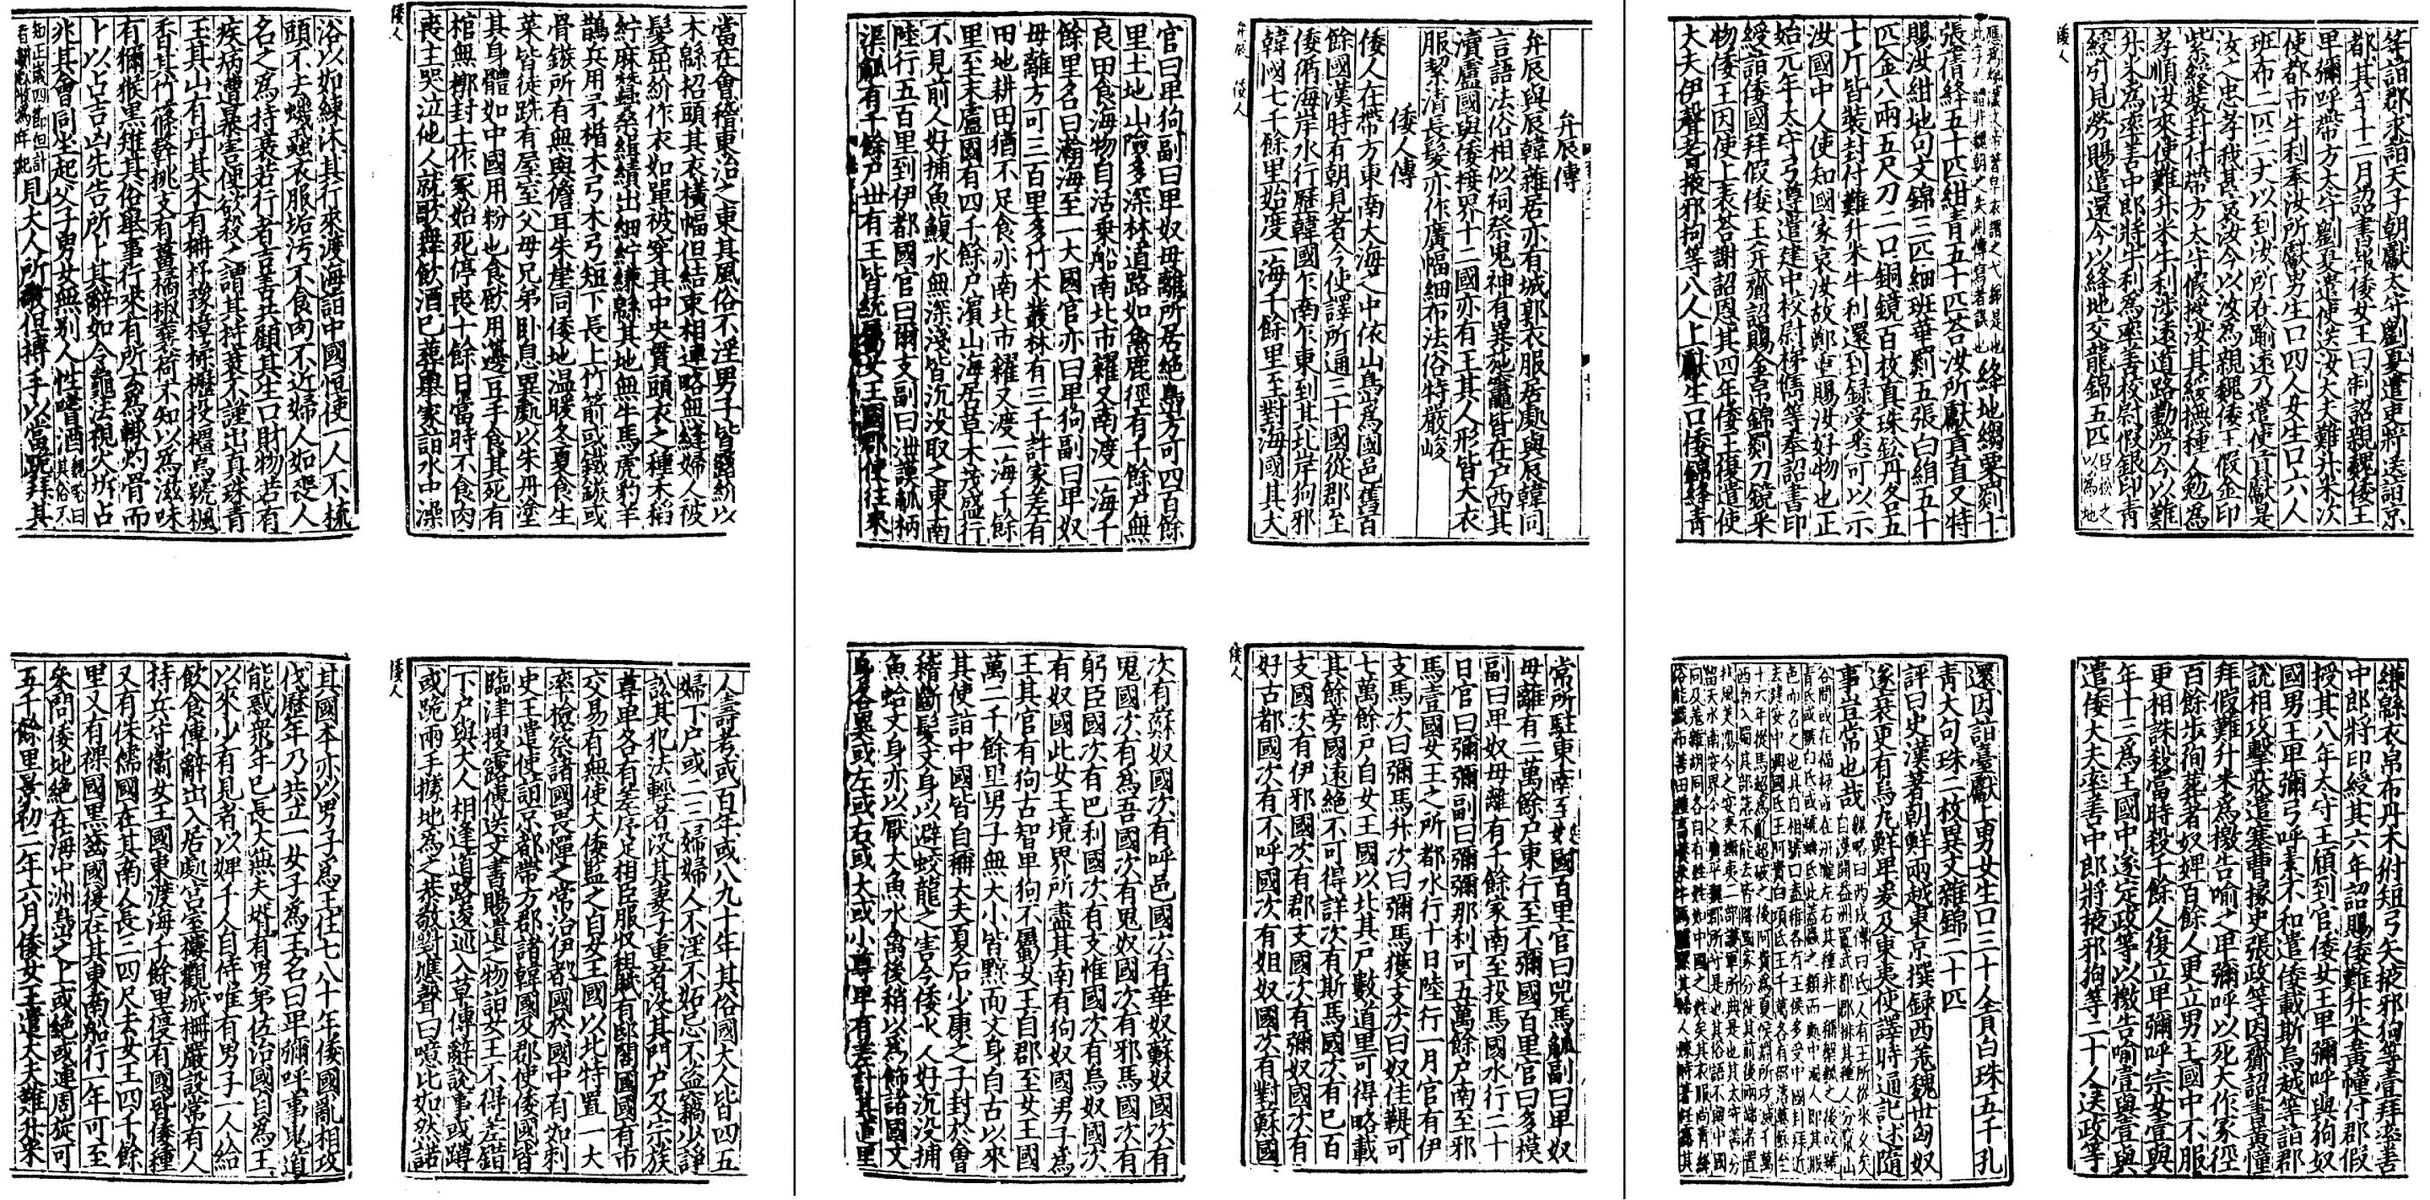 弁辰傳
弁辰與辰韓雜居亦有城郭衣服居處與辰韓同
言語法俗相似祠祭鬼神有異施竈皆在戶西其
瀆盧國與倭接界十二國亦有王其人形皆大衣
服絜清長髮亦作廣幅細布法俗特嚴峻
倭人傳
倭人在帶方東南大海之中依山㠀為國邑舊百
餘國漢時有朝見者今使譯所通三十國從郡至
倭循海岸水行歷韓國乍南乍東到其北岸狗邪
韓國七千餘里始度一海千餘里至對海國其大
弁辰 倭人
官曰卑狗副曰卑奴毋離所居絕㠀方可四百餘
里土地山險多深林道路如禽鹿徑有千餘戶無
良田食海物自活乗船南北巿糴又南渡一海千
餘里名曰瀚海至一大國官亦曰卑狗副曰卑奴
毋離方可三百里多竹木叢林有三千許家差有
田地耕田猶不足食亦南北巿糴又渡一海千餘
里至末盧國有四千餘戶濱山海居草木茂盛行
不見前人好捕魚鰒水無深淺皆沉没取之東南
陸行五百里到伊都國官曰爾支副曰泄謨觚柄
渠觚有千餘戶丗有王皆統屬女王國郡使往來
常所駐東南至奴國百里官曰兕馬觚副曰卑奴
毋離有二萬餘戶東行至不彌國百里官曰多模
副曰卑奴毋離有千餘家南至投馬國水行二十
日官曰彌彌副曰彌彌那利可五萬餘戶南至邪
馬壹國女王之所都水行十日陸行一月官有伊
支馬次曰彌馬升次曰彌馬獲支次曰奴佳鞮可
七萬餘戶自女王國以北其戶數道里可得略載
其餘旁國遠絕不可得詳次有斯馬國次有巳百
支國次有伊邪國次有郡支國次有彌奴國次有
好古都國次有不呼國次有姐奴國次有對蘇國
倭人
次有蘇奴國次有呼邑國次有華奴蘇奴國次有
鬼國次有為吾國次有鬼奴國次有邪馬國次有
躬臣國次有巴利國次有支惟國次有烏奴國次
有奴國此女王境界所盡其南有狗奴國男子為
王其官有狗古智卑狗不屬女王自郡至女王國
萬二千餘里男子無大小皆黥面文身自古以來
其使詣中國皆自稱大夫夏后少康之子封於會
稽斷髮文身以避蛟龍之害今倭水人好沉没捕
魚蛤文身亦以厭大魚水禽後稍以為飾諸國文
身各異或左或右或大或小尊卑有差計其道里
當在會稽東治之東其風俗不淫男子皆露紒以
木緜招頭其衣橫幅但結束相連略無縫婦人被
髮屈紒作衣如單被穿其中央貫頭衣之種禾稻
紵麻蠶桑緝績出細紵縑緜其地無牛馬虎豹羊
鵲兵用矛楯木弓木弓短下長上竹箭或鐵鏃或
骨鏃所有無與儋耳朱崖同倭地温暖冬夏食生
菜皆徒跣有屋室父母兄弟卧息異處以朱丹塗
其身體如中國用粉也食飲用籩豆手食其死有
棺無槨封土作冢始死停喪十餘日當時不食肉
喪主哭泣他人就歌舞飲酒已葬舉家詣水中澡
倭人
浴以如練沐其行來渡海詣中國恒使一人不梳
頭不去蟣蝨衣服垢汚不食肉不近婦人如喪人
名之為持衰若行者吉善共顧其生口財物若有
疾病遭暴害便欲殺之謂其持衰不謹出真珠青
玉其山有丹其木有柟杼豫樟楺櫪投橿烏號楓
香其竹篠簳桃支有薑橘椒蘘荷不知以為滋味
有獮猴黑雉其俗舉事行來有所云為輒灼骨而
卜以占吉凶先告所卜其辭如令龜法視火坼占
兆其會同坐起父子男女無别人性嗜酒魏略曰其俗不
知正歲四節但計春耕秋收為年紀見大人所敬但搏手以當跪拜其
人壽考或百年或八九十年其俗國大人皆四五
婦下戶或二三婦婦人不淫不妬忌不盗竊少諍
訟其犯法輕者没其妻子重者没其門戶及宗族
尊卑各有差序足相臣服收租賦有邸閣國國有巿
交易有無使大倭監之自女王國以北特置一大
率檢察諸國畏憚之常治伊都國於國中有如刺
史王遣使詣京都帶方郡諸韓國及郡使倭國皆
臨津搜露傳送文書賜遺之物詣女王不得差錯
下戶與大人相逢道路逡巡入草傳辭說事或蹲
或跪兩手據地為之恭敬對應聲曰噫比如然諾
倭人
其國本亦以男子為王住七八十年倭國亂相攻
伐歷年乃共立一女子為王名曰卑彌呼事鬼道
能惑衆年已長大無夫壻有男弟佐治國自為王
以來少有見者以婢千人自侍唯有男子一人給
飲食傳辭出入居處宮室樓觀城柵嚴設常有人
持兵守衞女王國東渡海千餘里復有國皆倭種
又有侏儒國在其南人長三四尺去女王四千餘
里又有裸國黑齒國復在其東南船行一年可至
參問倭地絕在海中洲㠀之上或絕或連周旋可
五千餘里景初二年六月倭女王遣大夫難升米
等詣郡求詣天子朝獻太守劉夏遣吏將送詣京
都其年十二月詔書報倭女王曰制詔親魏倭王
卑彌呼帶方太守劉夏遣使送汝大夫難升米次
使都巿牛利奉汝所獻男生口四人女生口六人
班布二匹二丈以到汝所在踰遠乃遣使貢獻是
汝之忠孝我甚哀汝今以汝為親魏倭王假金印
紫綬裝封付帶方太守假授汝其綏撫種人勉為
孝順汝來使難升米牛利涉遠道路勤勞今以難
升米為率善中郎將牛利為率善校尉假銀印青
綬引見勞賜遣還今以絳地交龍錦五匹臣松之以為地
倭人
應為綈漢文帝著皁衣謂之弋綈是也此字不體非魏朝之失則傳寫者誤也絳地縐粟罽十
張蒨絳五十匹紺青五十匹荅汝所獻貢直又特
賜汝紺地句文錦三匹細班華罽五張白絹五十
匹金八兩五尺刀二口銅鏡百枚真珠鈆丹各五
十斤皆裝封付難升米牛利還到録受悉可以示
汝國中人使知國家哀汝故鄭重賜汝好物也正
始元年太守弓遵遣建中校尉梯儁等奉詔書印
綬詣倭國拜假倭王并齎詔賜金帛錦罽刀鏡采
物倭王因使上表荅謝詔恩其四年倭王復遣使
大夫伊聲耆掖邪狗等八人上獻生口倭錦絳青
縑緜衣帛布丹木𤝔短弓矢掖邪狗等壹拜率善
中郎將印綬其六年詔賜倭難升米黃幢付郡假
授其八年太守王頎到官倭女王卑彌呼與狗奴
國男王卑彌弓呼素不和遣倭載斯烏越等詣郡
說相攻擊狀遣塞曹掾史張政等因齎詔書黃幢
拜假難升米為檄告喻之卑彌呼以死大作冢徑
百餘步狥葬者奴婢百餘人更立男王國中不服
更相誅殺當時殺千餘人復立卑彌呼宗女壹與
年十三為王國中遂定政等以檄告喻壹與壹與
遣倭大夫率善中郎將掖邪狗等二十人送政等
還因詣臺獻上男女生口三十人貢白珠五千孔
青大句珠二枚異文雜錦二十匹
評曰史漢著朝鮮兩越東京撰録西羌魏世匈奴
遂衰更有烏丸鮮卑爰及東夷使譯時通記述隨
事豈常也哉